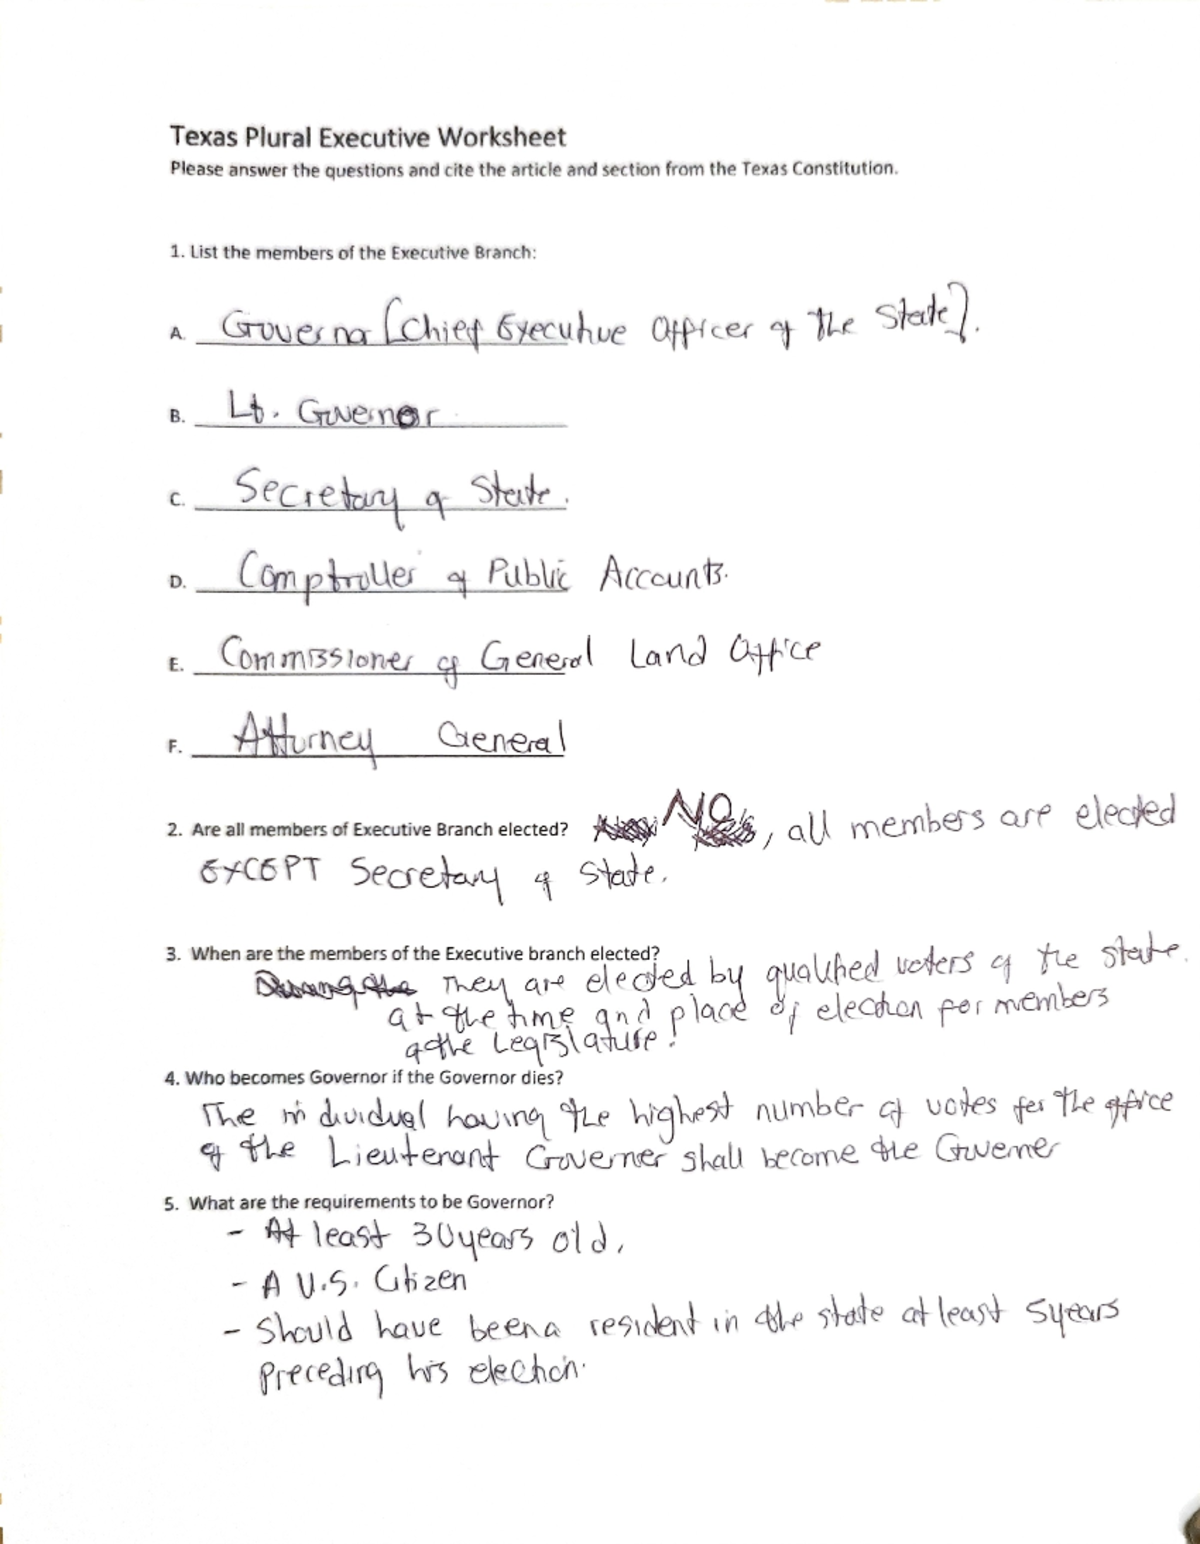 Texas Plural Executive Worksheet
Please answer the questions and cite the article and section from the Texas Constitution.
1. List the members of the Executive Branch:
A. Governor [Chief Executive Officer of the State].
B. Lt. Governor
C. Secretary of State.
D. Comptroller of Public Accounts.
E. Commissioner of General Land Office
F. Attorney General
2. Are all members of Executive Branch elected? NO, all members are elected
EXCEPT Secretary of State.
3. When are the members of the Executive branch elected?
They are elected by qualified voters of the state.
at the time and place of election for members
of the Legislature.
4. Who becomes Governor if the Governor dies?
The individual having the highest number of votes for the office
of the Lieutenant Governer shall become the Governer
5. What are the requirements to be Governor?
- At least 30 years old.
- A U.S. Citizen
- Should have been a resident in the state at least 5 years
preceding his election.